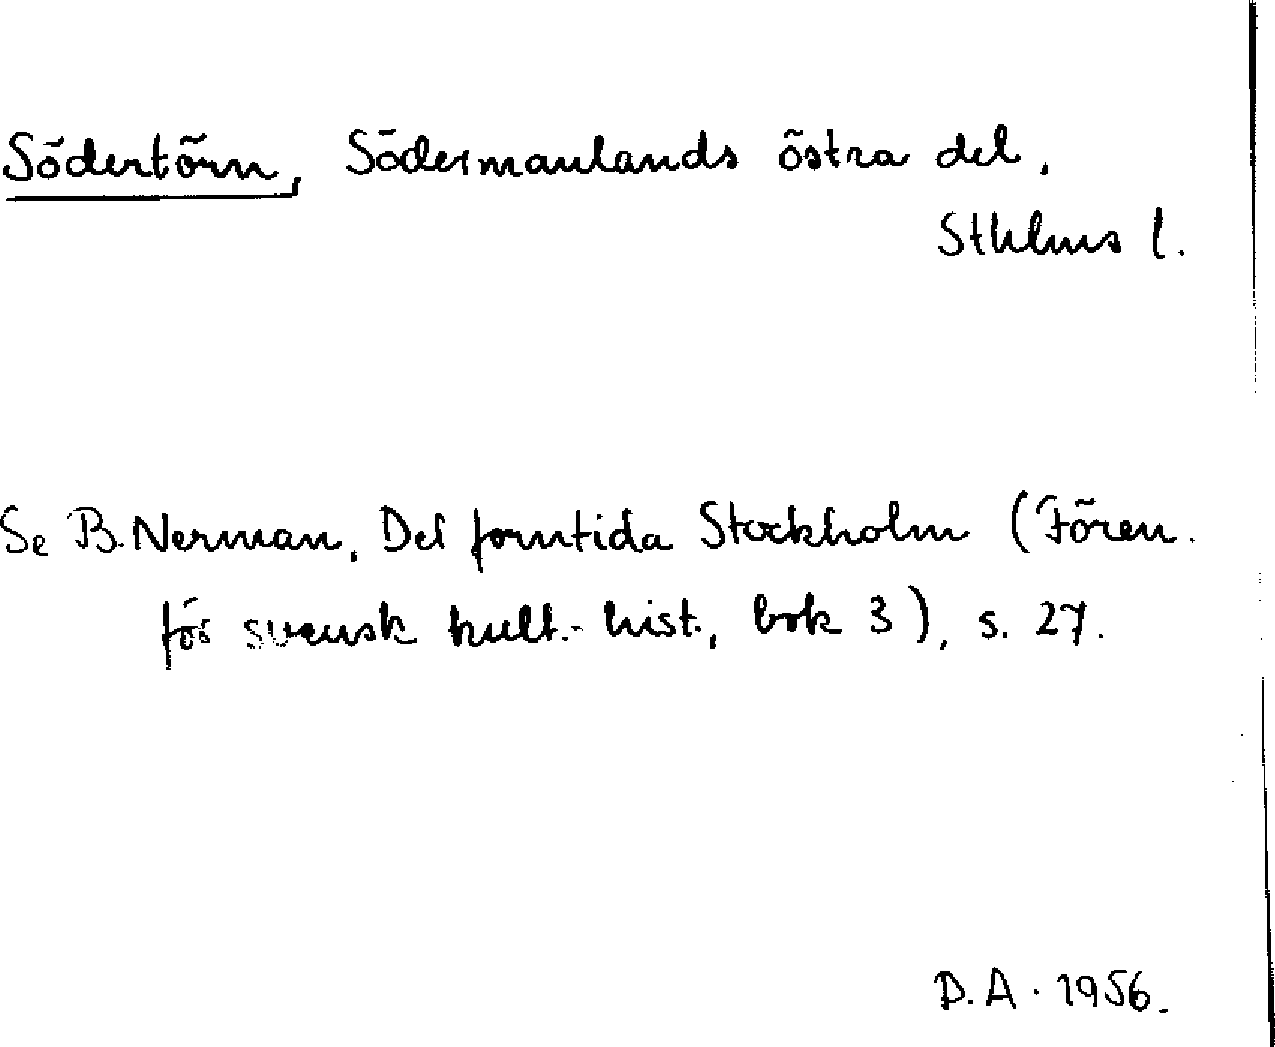 Södertörn, Södermanlands östra del,
Sthlms l.
Se B. Nerman, Det forntida Stockholm (Fören.
för svensk kult.-hist., bok 3), s. 27.
D.A. 1956.